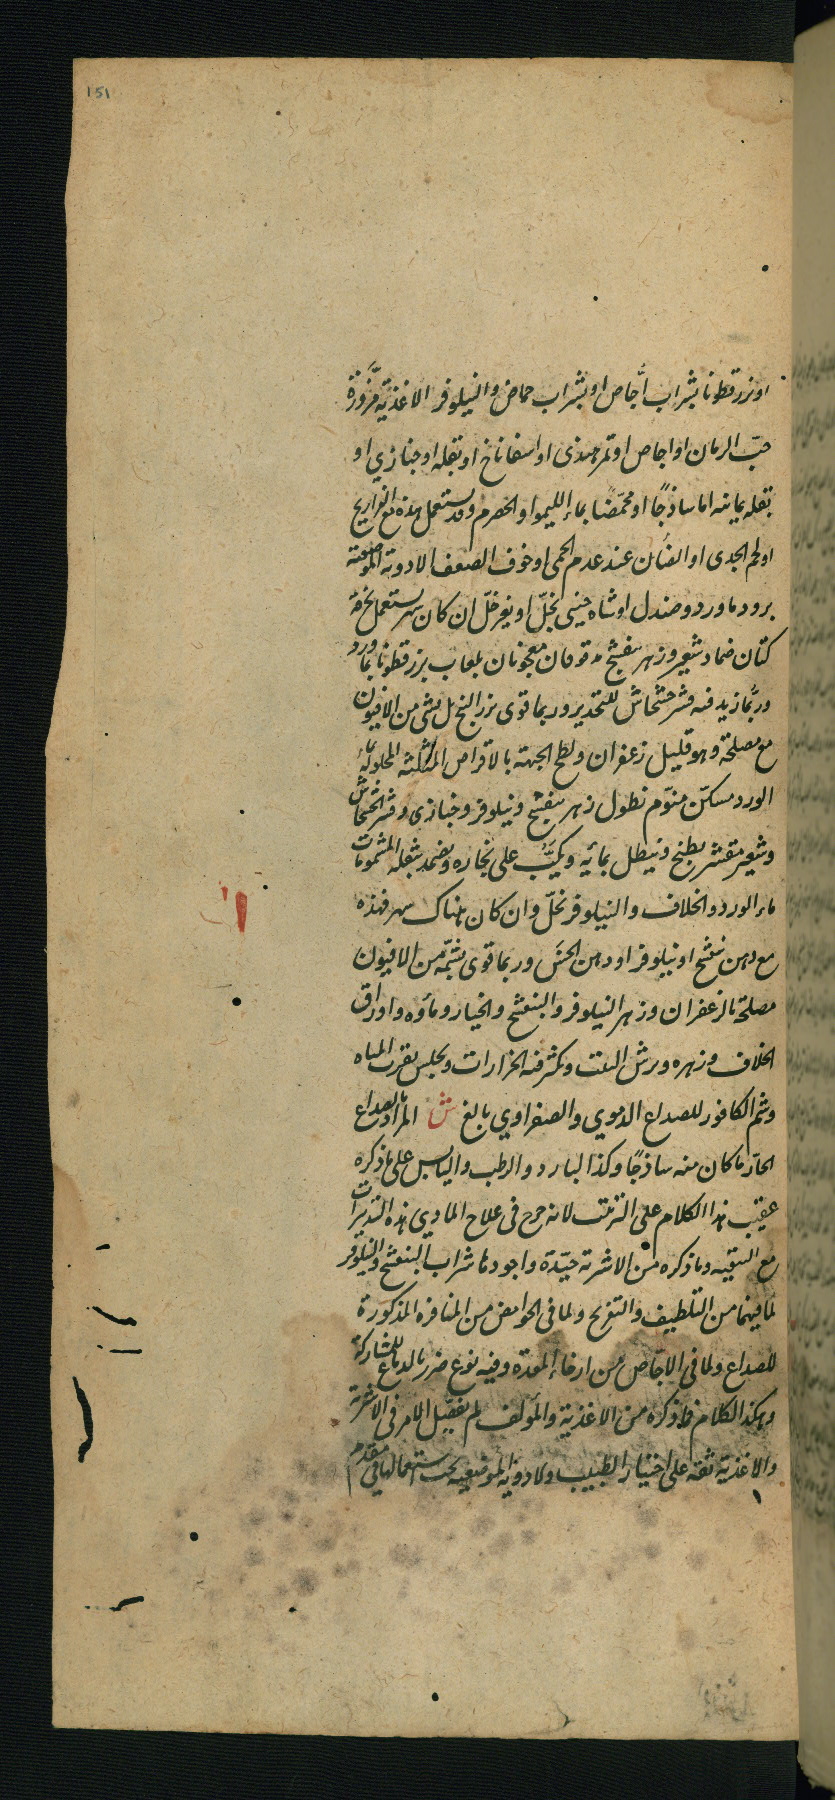 151
او بزرقطونا بشراب اجاص او بشراب حماض والنيلوفر الاغذية مزورة
حب الرمان او اجاص او تمر هندى او اسفاناخ او بقله او خبازي او
بقله يمانيه اما ساذجًا او محمّضا بماء الليمو او الحصرم وقد يستعمل هذه مع الفراريج
او لحم الجدى او الضأن عند عدم الحمى او خوف الضعف الادوية الموضعية
برود ماورد وصندل او شاه صينى بخلّ او بغير خلّ ان كان سهر يستعمل بخرقة
كتان ضماد شعير وزهر بنفسج مدقوقان معجونان بلعاب بزرقطونا بماورد
وربّما زيد فيه قشر خشخاش للتخدير وربما قوى ببزر البنج بل بشى من الافيون
مع مصلحه وهو قليل زعفران ولطخ الجبهة بالاقراص المثلثه المحلولة بماء
الورد مسكّن منوّم نطول زهر بنفسج ونيلوفر وخبازى وقشر الخشخاش
وشعير مقشر يطبخ وينطل بمائه ويكبّ على بخاره ويضمد بثفله المشمومات
ماء الورد والخلاف والنيلوفر بخلّ وان كان هناك سهر فهذه
مع دهن بنفسج او نيلوفر او دهن الخسّ وربما قوى بشمّه من الافيون
مصلحة بالزعفران وزهر النيلوفر والبنفسج والخيار وماؤه واوراق
الخلاف وزهره ويرش البيت ويكثر فيه الخرارات ويجلس بقرب المياه
وشم الكافور للصداع الدموي والصفراوي بالغ ش المراد بالصداع
الحارّ ما كان منه ساذجًا وكذا البارد والرطب واليابس على ما ذكره
عقيب هذا الكلام على الترتيب لانه صرح فى علاج المادي هذه التدبيرات
مع التنقيه وما ذكره من الاشربة جيّدة واجودها شراب البنفسج والنيلوفر
لما فيهما من التلطيف والتفريح ولما فى الحوامض من المنافرة المذكورة
للصداع ولما فى الاجاص من ارخاء المعدة وفيه نوع ضرر بالدماغ للمشاركة
وهكذا الكلام فيما ذكره من الاغذية والمؤلف لم يفصّل الامر فى الاشربة
والاغذية ثقة على اختيار الطبيب والادوية الموضعية يجب استعمالها فى مقدم